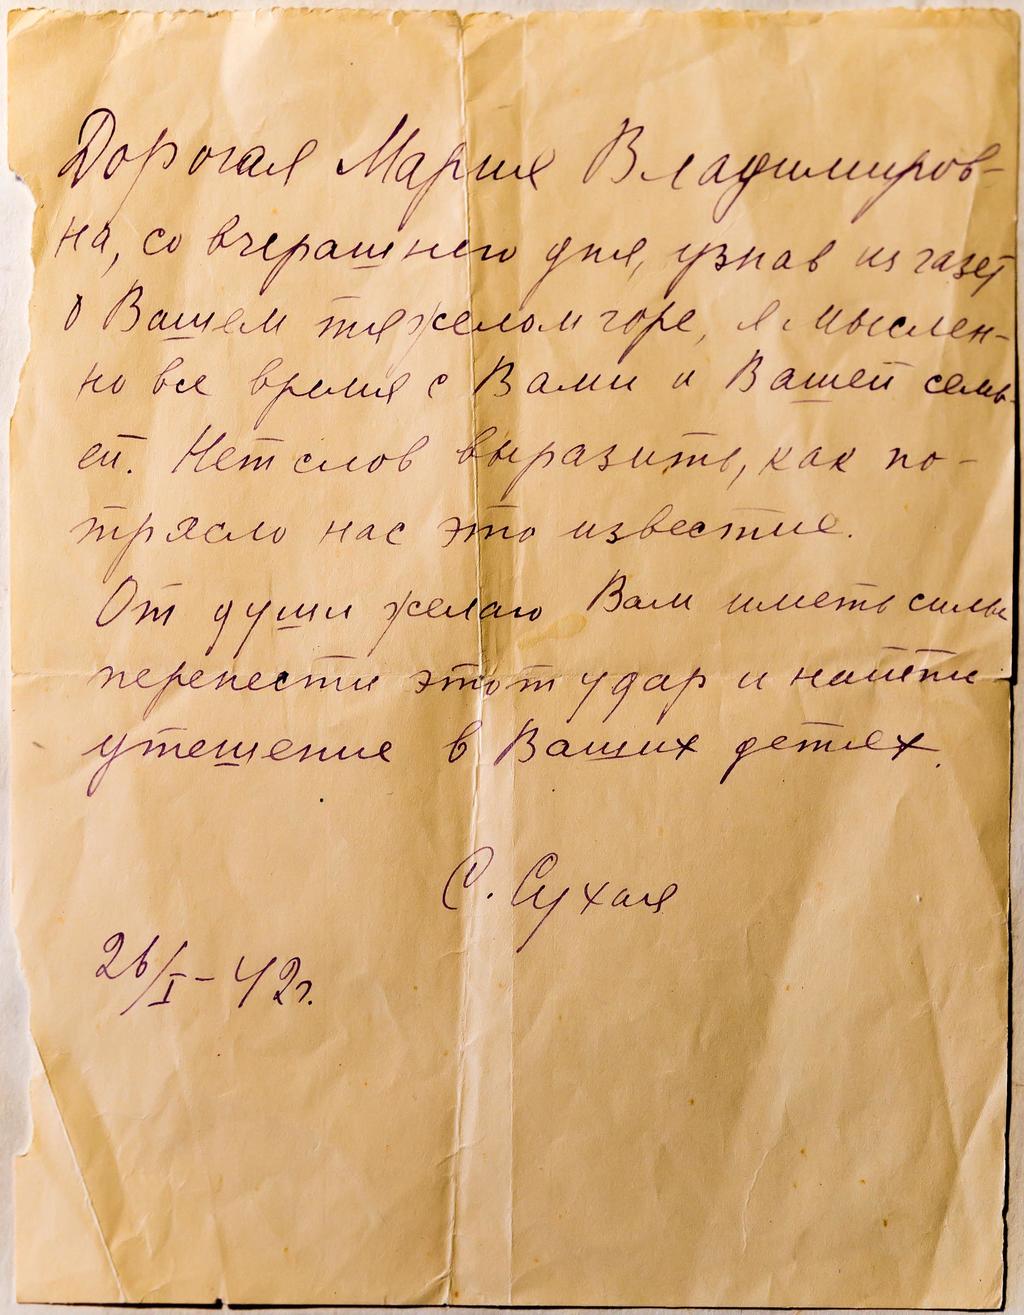 Дорогая Мария Владимиров-
на, со вчерашнего дня, узнав из газет
о Вашем тяжелом горе, я мыслен-
но все время с Вами и Вашей семь-
ей. Нет слов выразить, как по-
трясло нас это известие.
От души желаю Вам иметь силы
перенести этот удар и найти
утешение в Ваших детях.
С. Сухая
26/I-42г.